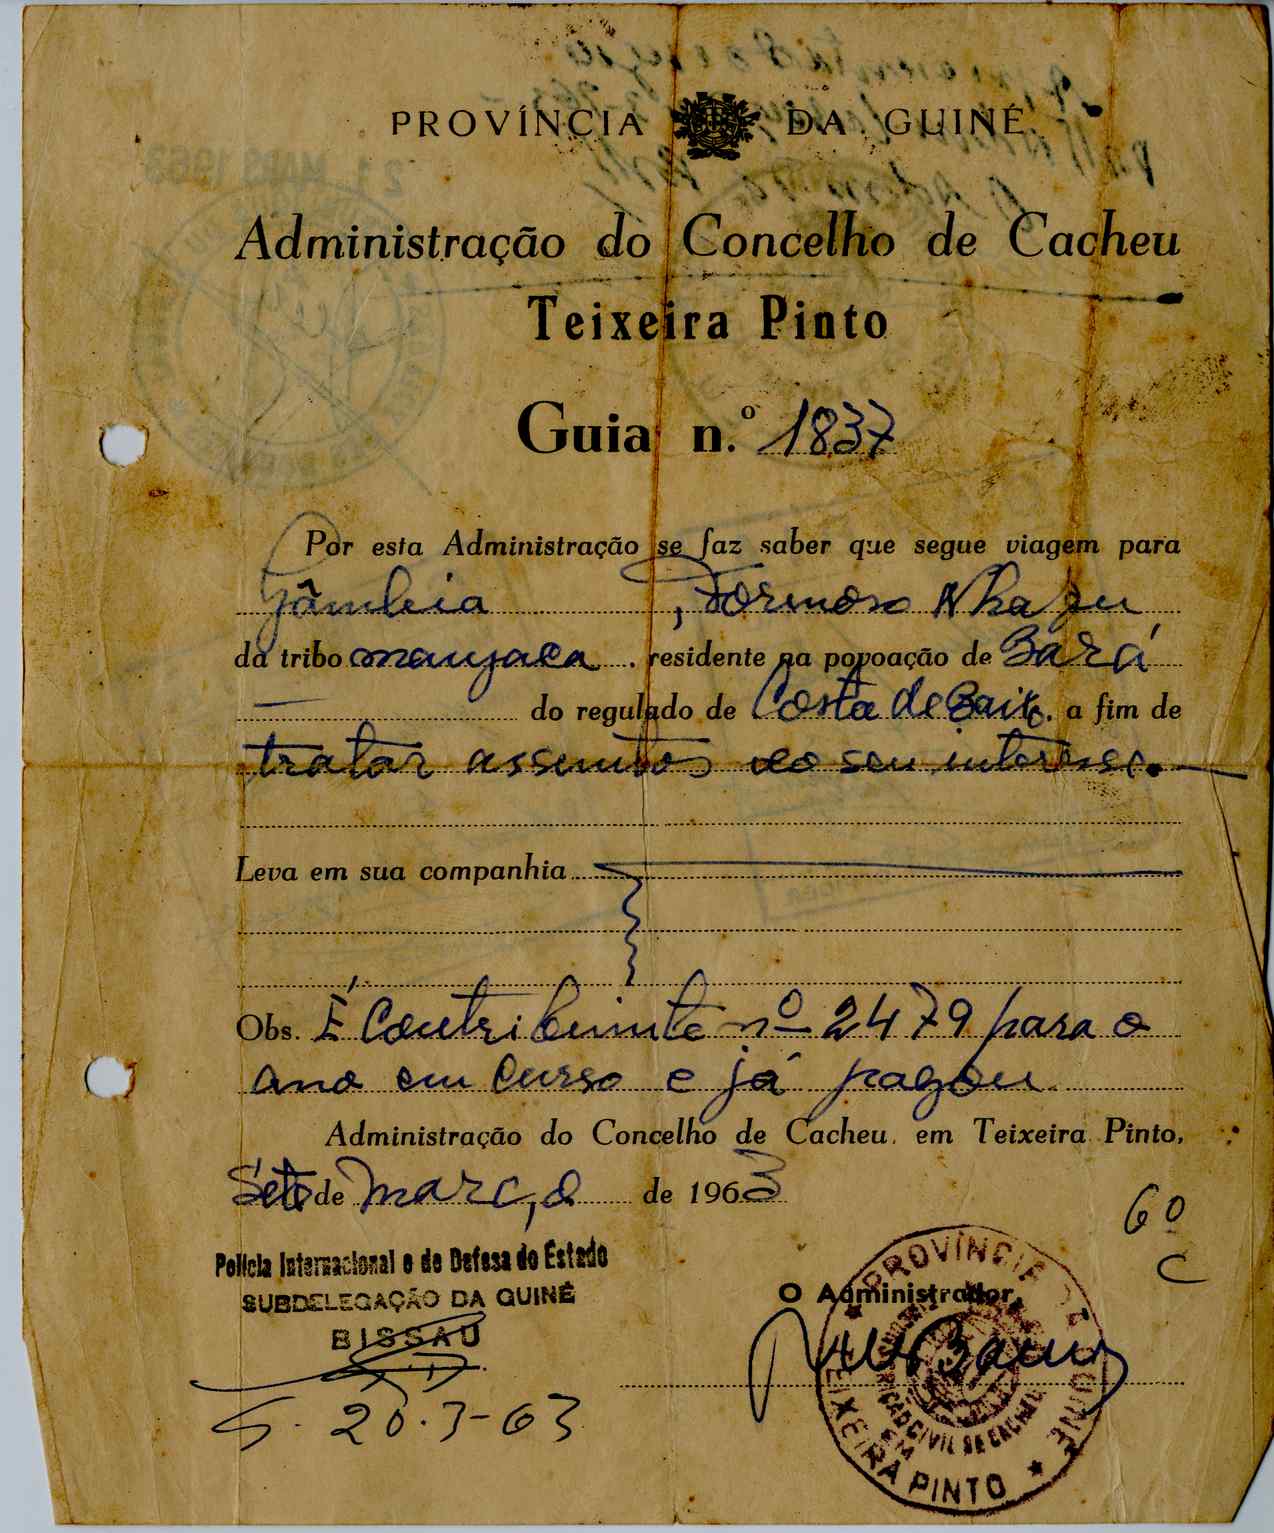 PROVÍNCIA DA GUINÉ
Administração do Concelho de Cacheu
Teixeira Pinto
Guia n.º 1837
Por esta Administração se faz saber que segue viagem para
Gâmbia, Formoso
da tribo manjaca, residente na popoação de Bará
— do regulado de Costa de Baixo. a fim de
tratar assuntos do seu interesse.—
Leva em sua companhia
Obs. É Contribuinte nº 2479 para o
ano em curso e já pagou
Administração do Concelho de Cacheu, em Teixeira Pinto,
Sete de Março de 1963
6º
C
Polícia Internacional e de Defesa do Estado
SUBDELEGAÇÃO DA GUINÉ
BISSAU
20.3-63
O Administrador,
PROVÍNCIA DE GUINÉ
CIVIL DE CACHEU
EM
TEIXEIRA PINTO
21 MARS 1963